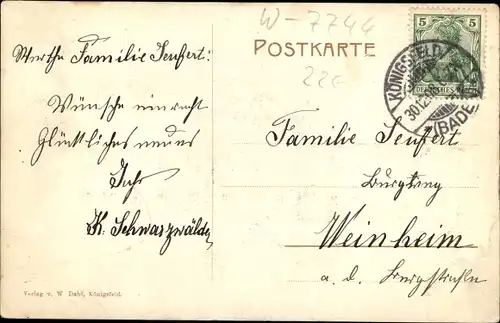 W-7744
POSTKARTE
5 5
KÖNIGSFELD
30.12.
(BADEN)
Werthe Familie Seufert!
Wünsche ein recht
Glückliches neues
Jahr
K. Schwarzwälder
Familie Seufert
Burgweg
Weinheim
a. d. Bergstraße
Verlag v. W Dahl, Königsfeld.